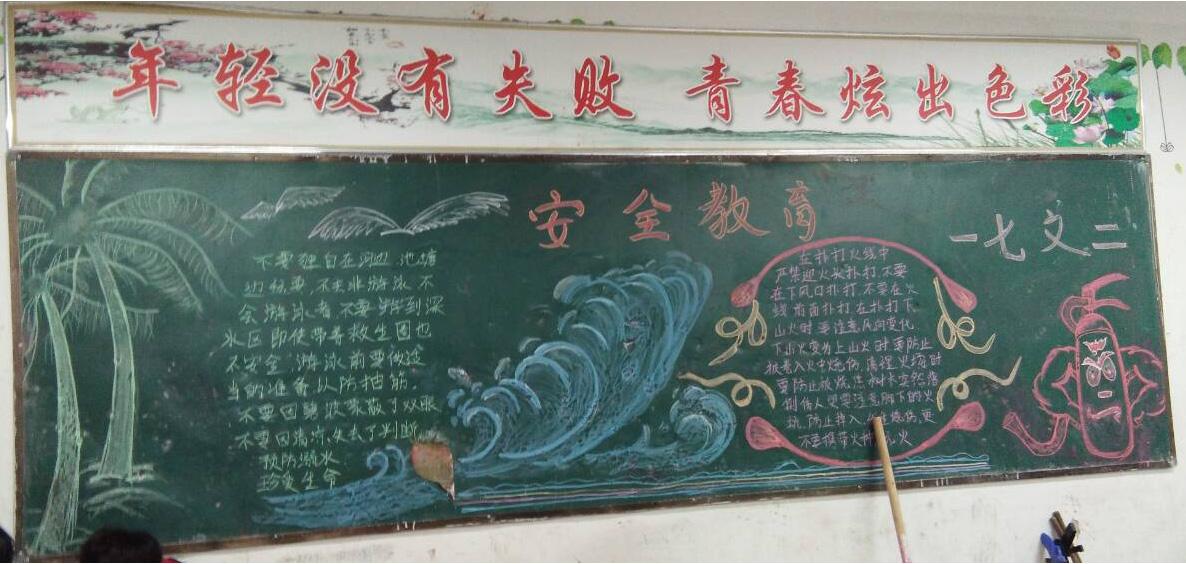 年轻没有失败 青春炫出色彩
安全教育
一七文二
不要独自在河边、池塘
边玩耍,不去非游泳
会游泳者,不要游到深
水区,即使带着救生圈也
不安全,游泳前要做适
当的准备以防抽筋.
不要因 欢乐蔽了双眼
不要因清凉失去了判断
预防溺水
珍爱生命
在扑打火线中
严禁迎火长扑打,不要
在下风口扑打,不要在火
线前面扑打,在扑打下
山火时要注意风向变化
下山火变为上山火时要防止
被卷入火中烧伤,清理火场时
要防止被烧焦树木突然落
倒伤人更要注意脚下的火
坑,防止摔入 烧伤,更
不要携带火种 火